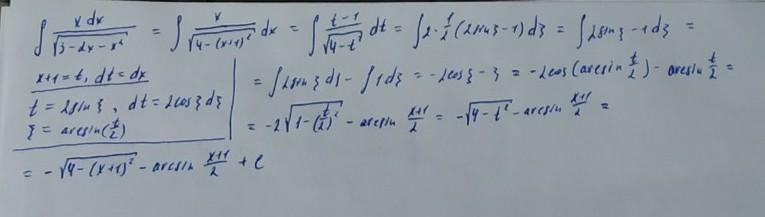 ∫ x dx / √(3-2x-x²) = ∫ x / √(4-(x+1)²) dx = ∫ (t-1) / √(4-t²) dt = ∫ 2·1/2 (2sin ξ -1) dξ = ∫ 2sin ξ -1 dξ =
x+1=t, dt=dx
t = 2sin ξ , dt = 2cos ξ dξ
ξ = arcsin(t/2)
= ∫ 2sin ξ dξ - ∫ 1 dξ = -2cos ξ - ξ = -2cos(arcsin t/2) - arcsin t/2 =
= -2√(1-(t/2)²) - arcsin (x+1)/2 = -√(4-t²) - arcsin (x+1)/2 =
= -√(4-(x+1)²) - arcsin (x+1)/2 + C